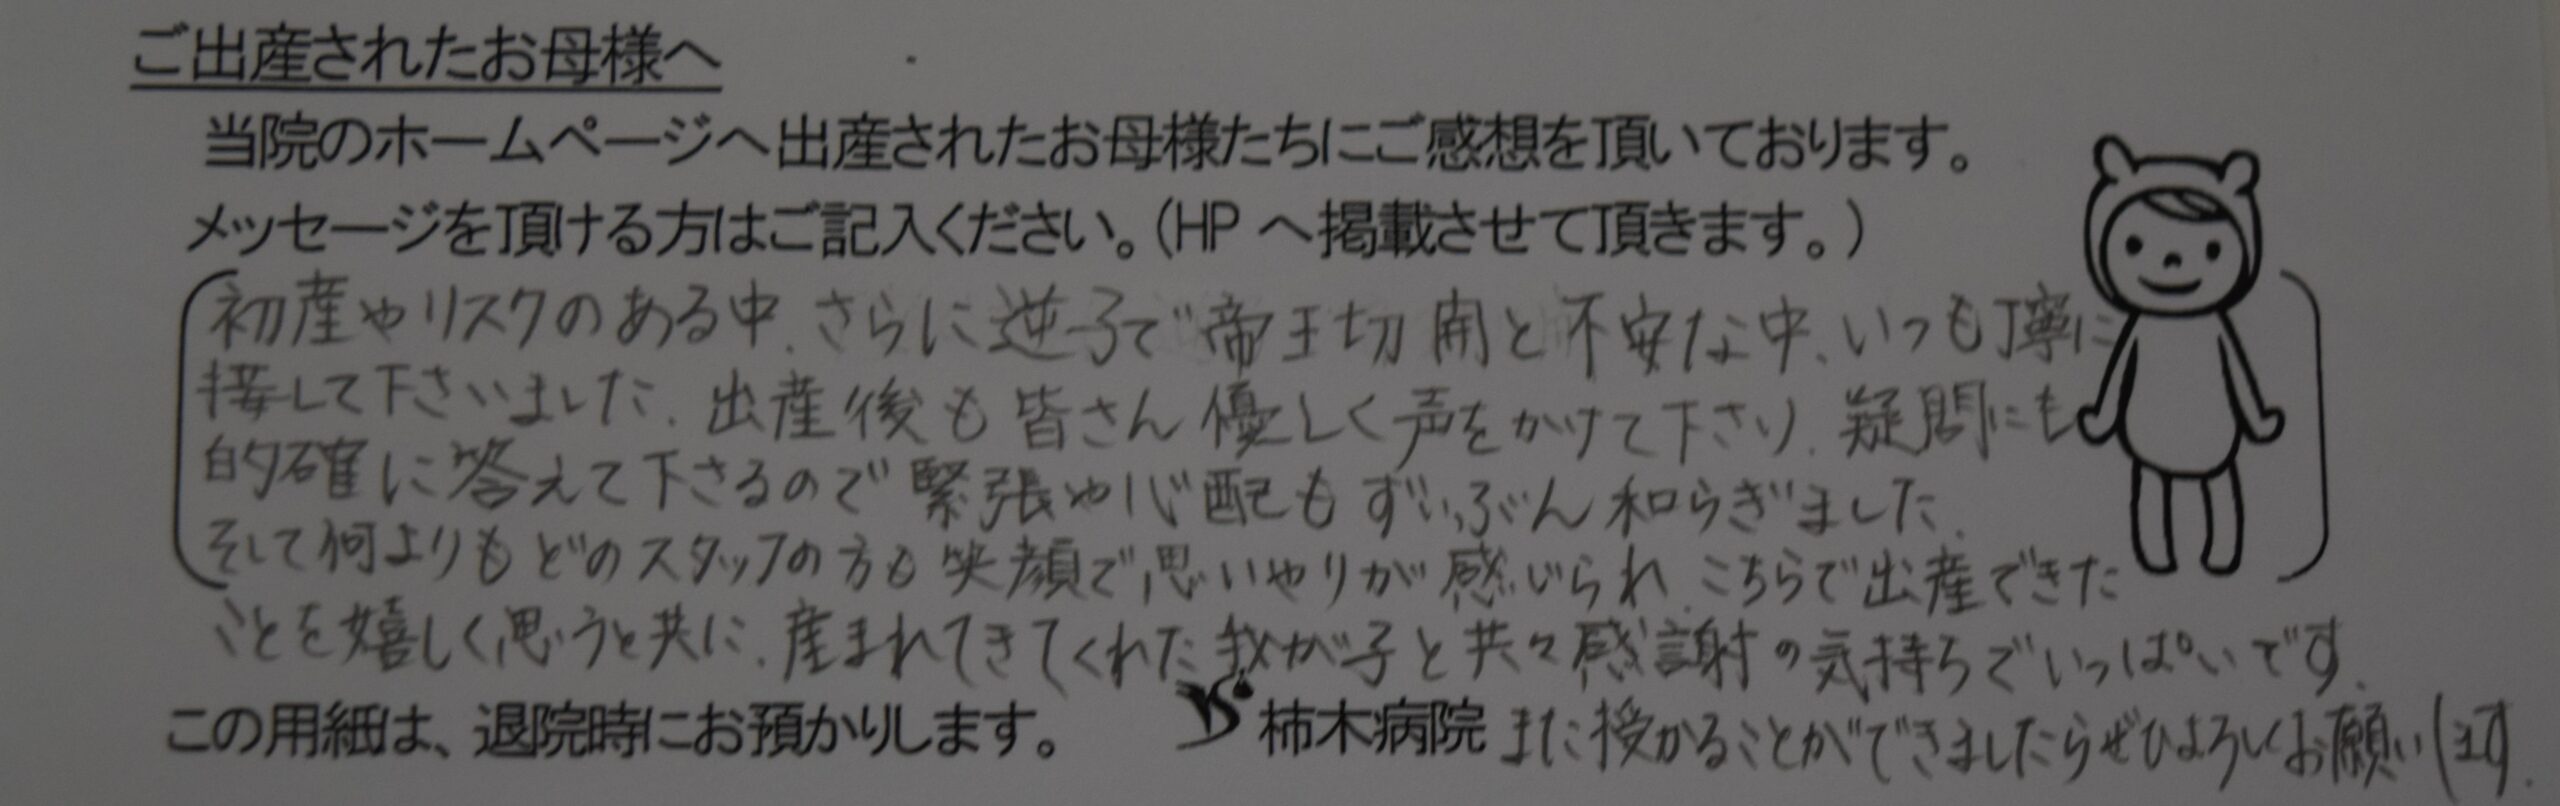 ご出産されたお母様へ
当院のホームページへ出産されたお母様たちにご感想を頂いております。
メッセージを頂ける方はご記入ください。(HP へ掲載させて頂きます。)
初産やリスクのある中、さらに逆子で帝王切開と不安な中、いつも丁寧に
接して下さいました。出産後も皆さん優しく声をかけて下さり、疑問にも
的確に答えて下さるので緊張や心配もずいぶん和らぎました。
そして何よりもどのスタッフの方も笑顔で思いやりが感じられ、こちらで出産できた
ことを嬉しく思うと共に、産まれてきてくれた我が子と共々感謝の気持ちでいっぱいです。
この用紙は、退院時にお預かりします。 柿木病院 また授かることができましたらぜひよろしくお願いします。